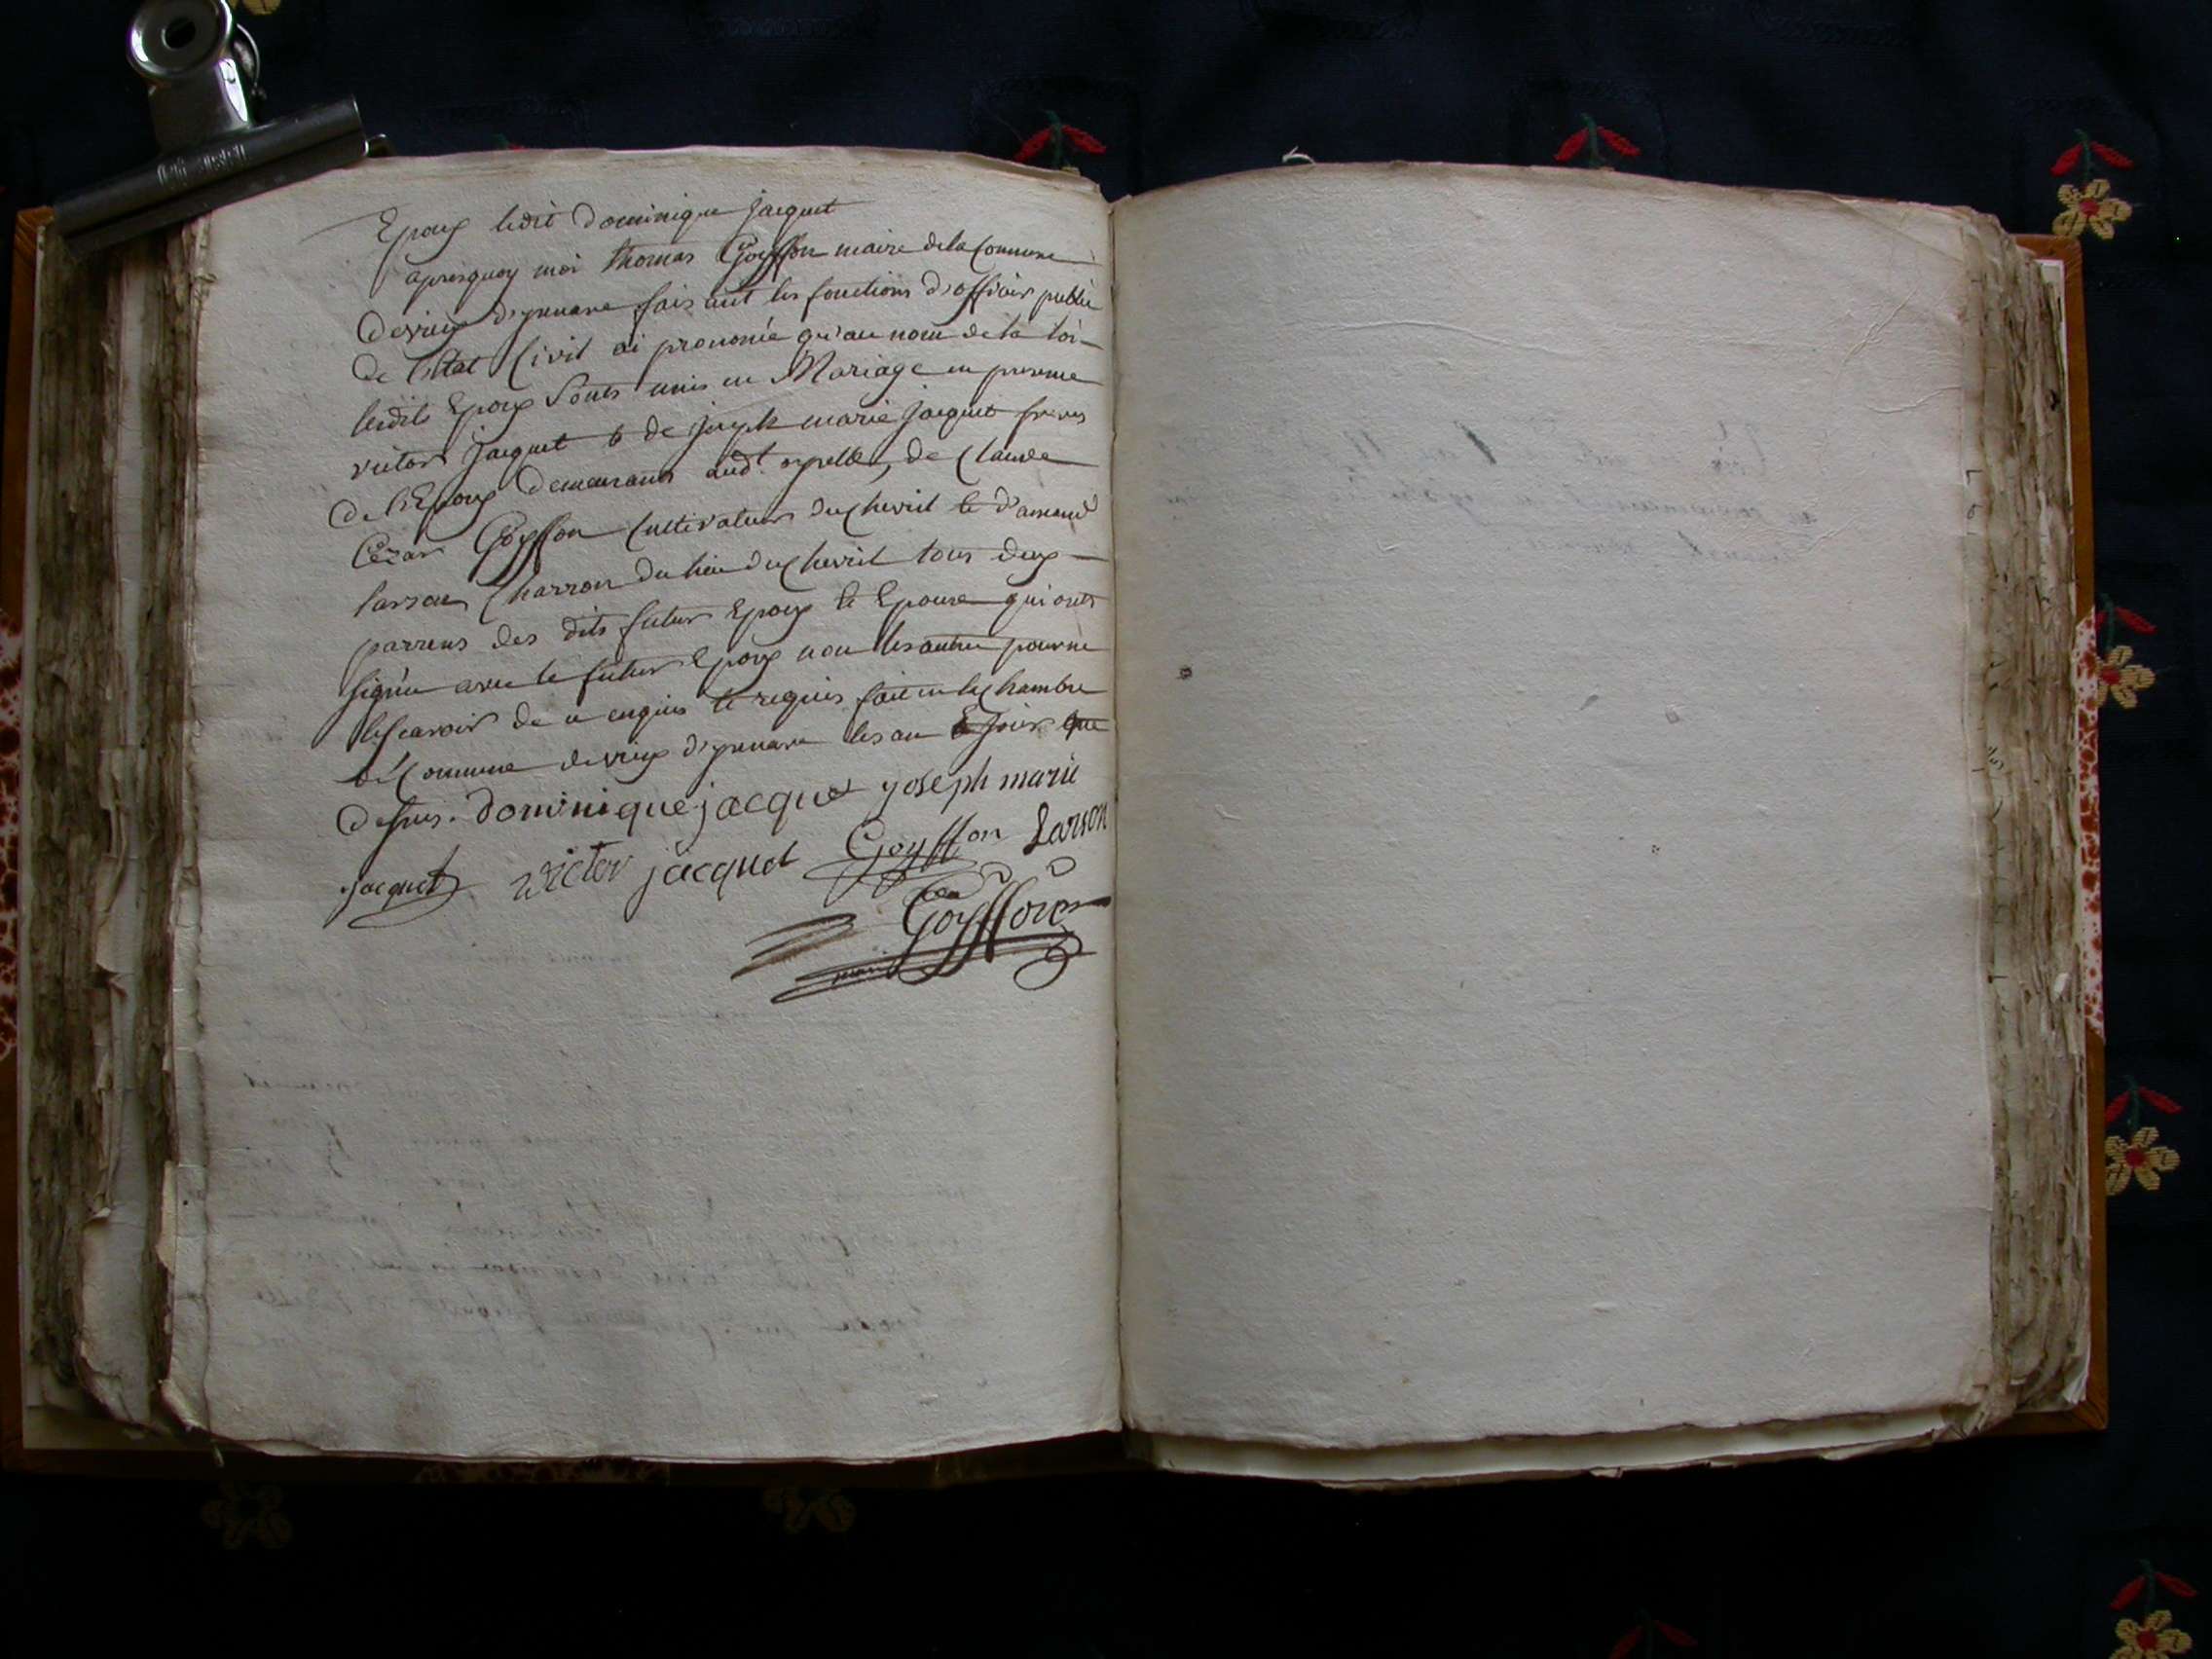 Epoux ledit Dominique jacquet
apresquoy moi thomas Goÿffon maire dela Commune
devieux d'yzenave faisant les fonctions d'officier public
de l'Etat Civil ai prononcée qu'au nom de la loi
lesdits Epoux sonts unis en Mariage en presence
victor jacquet & de joseph marie jacquet freres
de l'Epoux demeurants aud.t de Claude
Cézar Goÿffon Cultivateur du Chevril et d'amand
larson Charron du lieu du Chevril tous deux
parrens des dits futur Epoux et Epouse qui onts
signée avec le futur Epoux non les autres pour ne
lesçavoir de ce enquis et requis fait en la Chambre
de Commune devieux d'yzenave les an & jour que
dessus. dominique jacquet joseph marie
jacquet victor jacquet Goyffon Larson
Goÿffon
maire